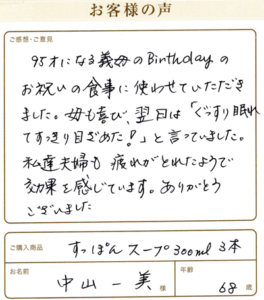 お客様の声
ご感想・ご意見
95才になる義母のBirthdayの
お祝いの食事に使わせていただき
ました。母も喜び、翌日は「ぐっすり眠れ
てすっきり目ざめた!」と言っていました。
私達夫婦も疲れがとれたようで
効果を感じています。ありがとう
ございました
ご購入商品 すっぽんスープ300ml 3本
お名前 中山一美 様 年齢 68 歳